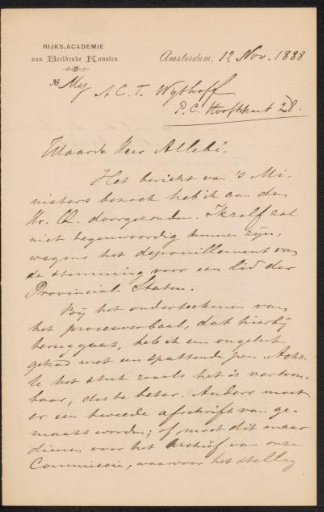 RIJKS-ACADEMIE
van Beeldende Kunsten.
Amsterdam, 12 Nov. 1888
No. My
A. C. T. Wythoff
P. C. Hooftstraat 28.
Waarde Heer Allebé.
Het bericht van 's Mi-
nisters bezoek heb ik aan den
Hr. doorgezonden. Ikzelf zal
niet tegenwoordig kunnen zijn,
wegens het depouillement van
de stemming voor een lid der
Provinciale Staten.
Bij het onderteekenen van
het procesverbaal, dat hierbij
teruggaat, heb ik een ongeluk
gehad met een spattende pen. Acht
U het stuk zooals het is vertoon-
baar, des te beter. Anders moet
er een tweede afschrift van ge-
maakt worden; of moet dit maar
dienen voor het Archief van onze
Commissie, waarvoor het stellig